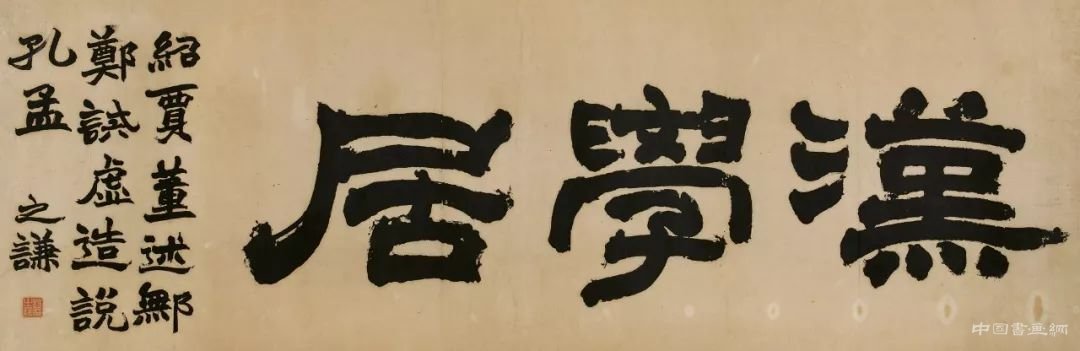 漢學居
紹賈董述鄦
鄭誡虛造說
孔孟
之謙
中国書画網